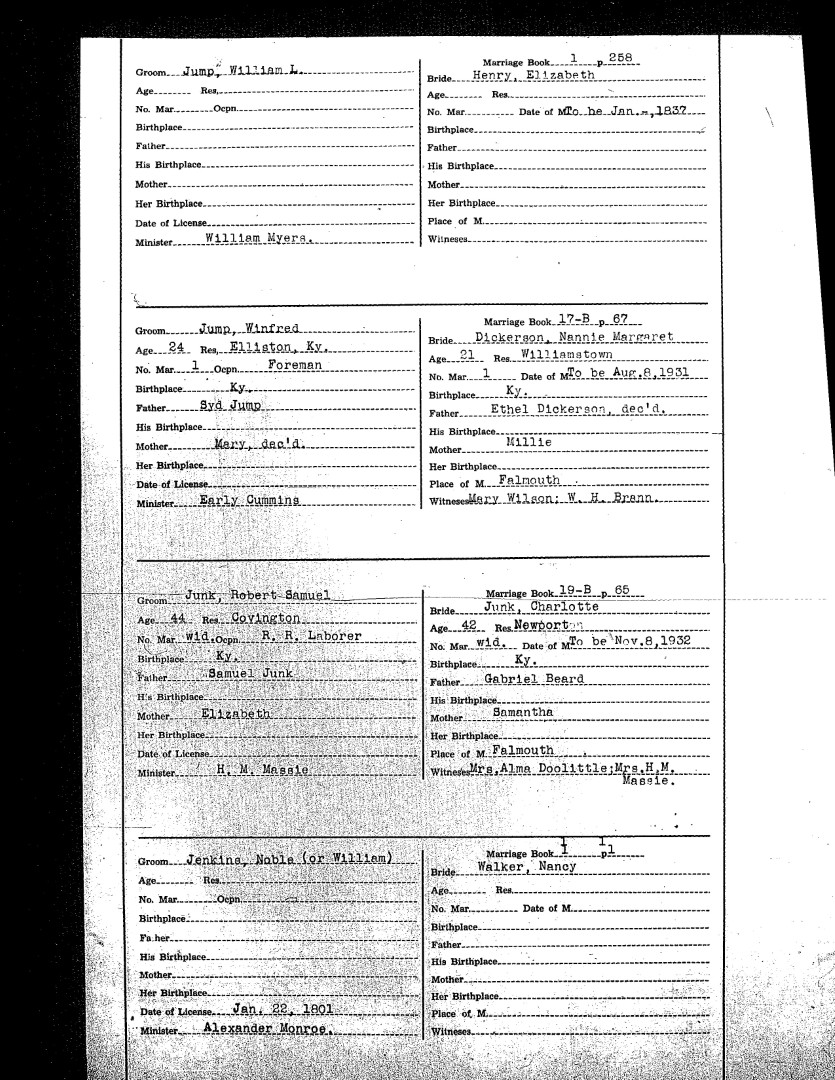 Marriage Book 1 p 258
Groom Jump, William L.
Bride Henry, Elizabeth
Age Res.
Age Res.
No. Mar. Ocpn.
No. Mar. Date of M. To be Jan. -, 1837
Birthplace
Birthplace
Father
Father
His Birthplace
His Birthplace
Mother
Mother
Her Birthplace
Her Birthplace
Date of License
Place of M.
Minister William Myers.
Witneses
Marriage Book 17-B p 67
Groom Jump, Winfred
Bride Dickerson, Nannie Margaret
Age 24 Res. Elliston, Ky.
Age 21 Res. Williamstown
No. Mar. 1 Ocpn. Foreman
No. Mar. 1 Date of M. To be Aug.8,1931
Birthplace Ky.
Birthplace Ky.
Father Syd Jump
Father Ethel Dickerson, dec'd.
His Birthplace
His Birthplace
Mother Mary, dec'd.
Mother Millie
Her Birthplace
Her Birthplace
Date of License
Place of M. Falmouth
Minister Early Cummins
Witneses Mary Wilson; W. H. Brann.
Marriage Book 19-B p 65
Groom Junk, Robert Samuel
Bride Junk, Charlotte
Age 44 Res. Covington
Age 42 Res. Newport
No. Mar. wid. Ocpn. R. R. Laborer
No. Mar. wid. Date of M. To be Nov.8,1932
Birthplace Ky.
Birthplace Ky.
Father Samuel Junk
Father Gabriel Beard
His Birthplace
His Birthplace
Mother Elizabeth
Mother Samantha
Her Birthplace
Her Birthplace
Date of License
Place of M. Falmouth
Minister H. M. Massie
Witneses Mrs.Alma Doolittle;Mrs.H.M.
Massie.
Marriage Book 1 p 1
Groom Jenkins, Noble (or William)
Bride Walker, Nancy
Age Res.
Age Res.
No. Mar. Ocpn.
No. Mar. Date of M.
Birthplace
Birthplace
Father
Father
His Birthplace
His Birthplace
Mother
Mother
Her Birthplace
Her Birthplace
Date of License Jan. 22, 1801
Place of M.
Minister Alexander Monroe.
Witneses